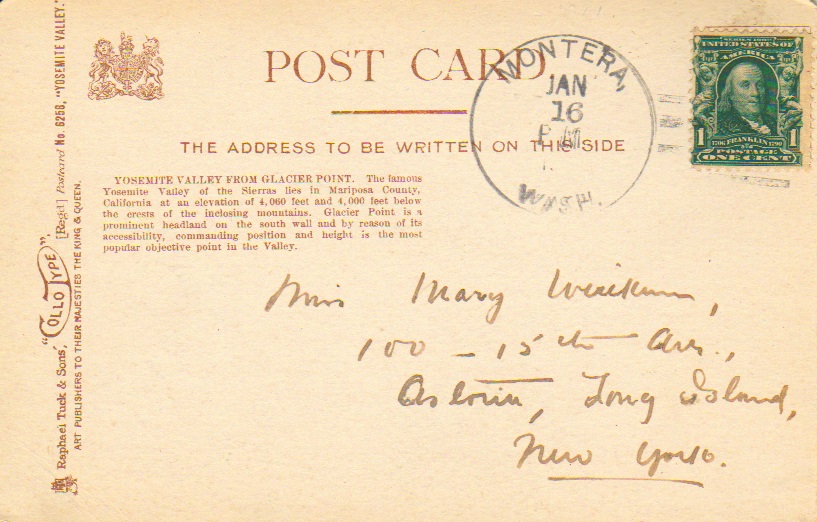 POST CARD
THE ADDRESS TO BE WRITTEN ON THIS SIDE
MONTERA,
JAN
16
PM
WASH.
SERIES 1902
UNITED STATES OF
AMERICA
1 1706 FRANKLIN 1790 1
POSTAGE
ONE CENT
YOSEMITE VALLEY FROM GLACIER POINT. The famous
Yosemite Valley of the Sierras lies in Mariposa County,
California at an elevation of 4,060 feet and 4,000 feet below
the crests of the inclosing mountains. Glacier Point is a
prominent headland on the south wall and by reason of its
accessibility, commanding position and height is the most
popular objective point in the Valley.
Miss Mary
100 – 15th Ave.,
Astoria, Long Island,
New York.
Raphael Tuck & Sons' "COLLOTYPE" [Regd.] Postcard No. 6256, "YOSEMITE VALLEY."
ART PUBLISHERS TO THEIR MAJESTIES THE KING & QUEEN.